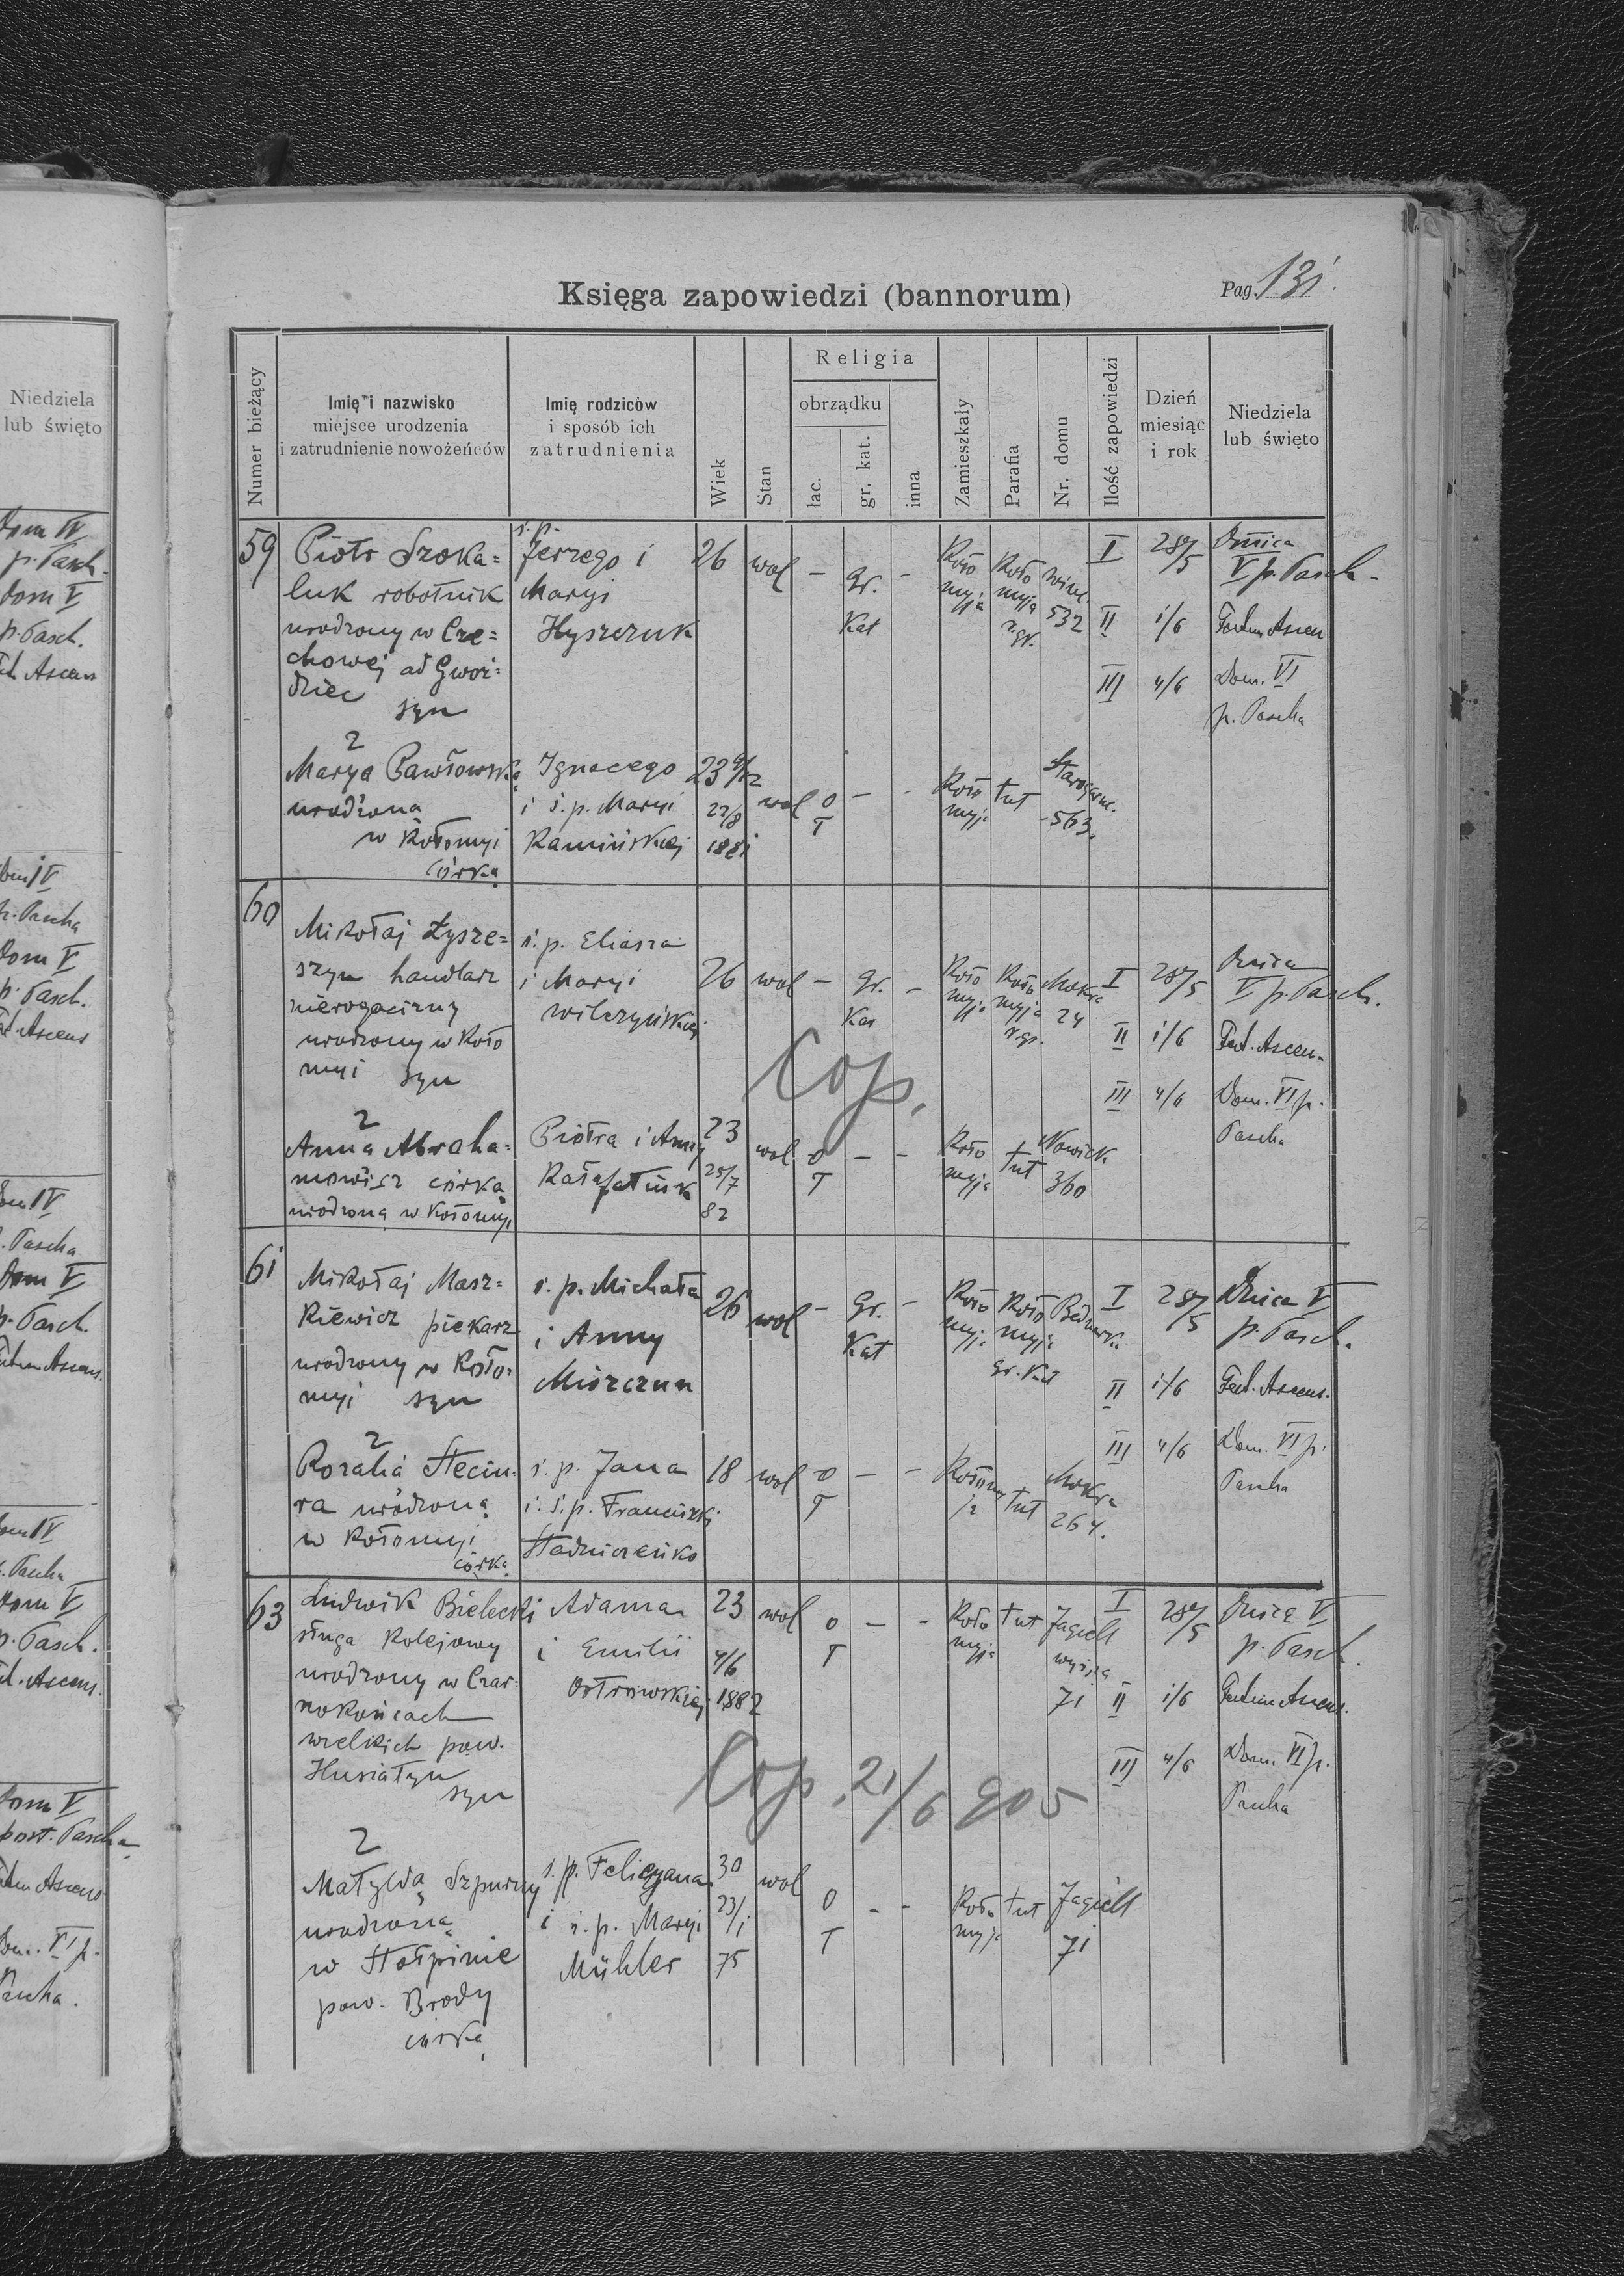 Niedziela
lub święto
Dom IV
p. Pasch.
Dom V
p. Pasch.
Ascens
Dom IV
p. Pascha
Dom V
p. Pasch.
Ascens
Dom IV
p. Pascha
Dom V
p. Pasch.
Ascens.
Dom IV
p. Pascha
Dom V
p. Pasch.
Ascens.
Dom V
post. Pascha
Ascens
Dom. VI p.
Pascha.
Księga zapowiedzi (bannorum)
Pag. 131.
Numer bieżący
Imię i nazwisko
miejsce urodzenia
i zatrudnienie nowożeńców
Imię rodziców
i sposób ich
zatrudnienia
Wiek
Stan
Religia
obrządku
łac.
gr. kat.
inna
Zamieszkały
Parafia
Nr. domu
Ilość zapowiedzi
Dzień
miesiąc
i rok
Niedziela
lub święto
59
Piotr Szoka=
luk robotnik
urodzony w Cze=
chowej ad Gwoź=
dziec
syn
ś.p.
Jerzego i
Maryi
Hyszczuk
26 wol - gr. -
Kat
Koło
myja
Koło
myja
r. gr.
532
I 28/5 Dnica
V p. Pasch.
II 1/6 Festum Ascen
III 4/6 Dom. VI
p. Pascha
z
Marya Pawłowska
urodzona
w Kołomyi
córka
Ignacego
i ś. p. Maryi
Kamińskiej
23 9/12
22/8
1881
wol
o
T
- -
Koło
myja
tut
563.
60
Mikołaj Łysze=
szyn handlarz
nierogacizny
urodzony w Koło
myi syn
ś. p. Eliasza
i Maryi
Wilczyńskiej
26 wol - gr. -
Kat
Koło
myja
Koło
myja
r. gr.
Mokra
24
I 28/5 Dnica
V p. Pasch.
II 1/6 Fest. Ascen.
III 4/6 Dom. VI p.
Pascha
Cop.
z
Anna Abraha=
mowicz córka
urodzona w Kołomyi
Piotra i Anny
23
25/7
82
wol
o
T
- -
Koło
myja
tut
360
61
Mikołaj Masz=
kiewicz piekarz
urodzony w Koło=
myi syn
ś. p. Michała
i Anny
26 wol - Gr. -
Kat
Koło
myja
Koło
myja
gr. Kat
I 28/5 Dnica V
p. Pasch.
II 1/6 Fest. Ascens.
III 4/6 Dom. VI p.
Pascha
z
Rozalia Steciu=
ra urodzona
w Kołomyi
córka
ś. p. Jana
i ś. p. Franciszki
Stadniczeńko
18 wol
o
T
- -
Kołomy
ja
tut
Mokra
264.
63
Ludwik Bielecki
sługa kolejowy
urodzony w Czar=
nokońcach
wielkich pow.
Husiatyn
syn
Adama
i Emilii
Ostrowskiej
23
4/6
1882
wol
o
T
- -
Koło
myja
tut
Jagiell
wyższa
71
I 28/5 Dnica V
p. Pasch.
II 1/6 Festum Ascens.
III 4/6 Dom. VI p.
Pascha
Cop. 21/6 905
z
Matylda Szpurny
urodzona
w Stołpinie
pow. Brody
córka
ś. p. Felicyana
i ś. p. Maryi
Mühler
30
23/1
75
wol
o
T
- -
Koło
myja
tut
Jagiell
71